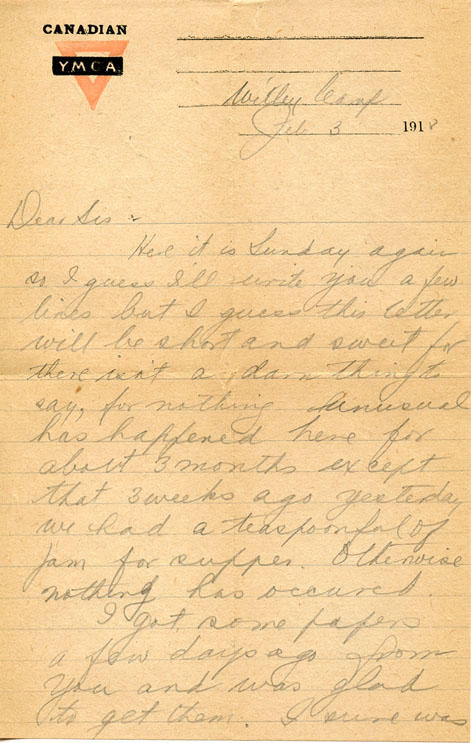 CANADIAN
YMCA
Witley Camp
Feb 3 1918
Dear Sis :-
Here it is Sunday again
so I guess I'll write you a few
lines but I guess this letter
will be short and sweet for
there isn't a darn thing to
say, for nothing unusual
has happened here for
about 3 months except
that 3 weeks ago yesterday
we had a teaspoonful of
jam for supper. Otherwise
nothing has occured.
I got some papers
a few days ago from
you and was glad
to get them. I sure was